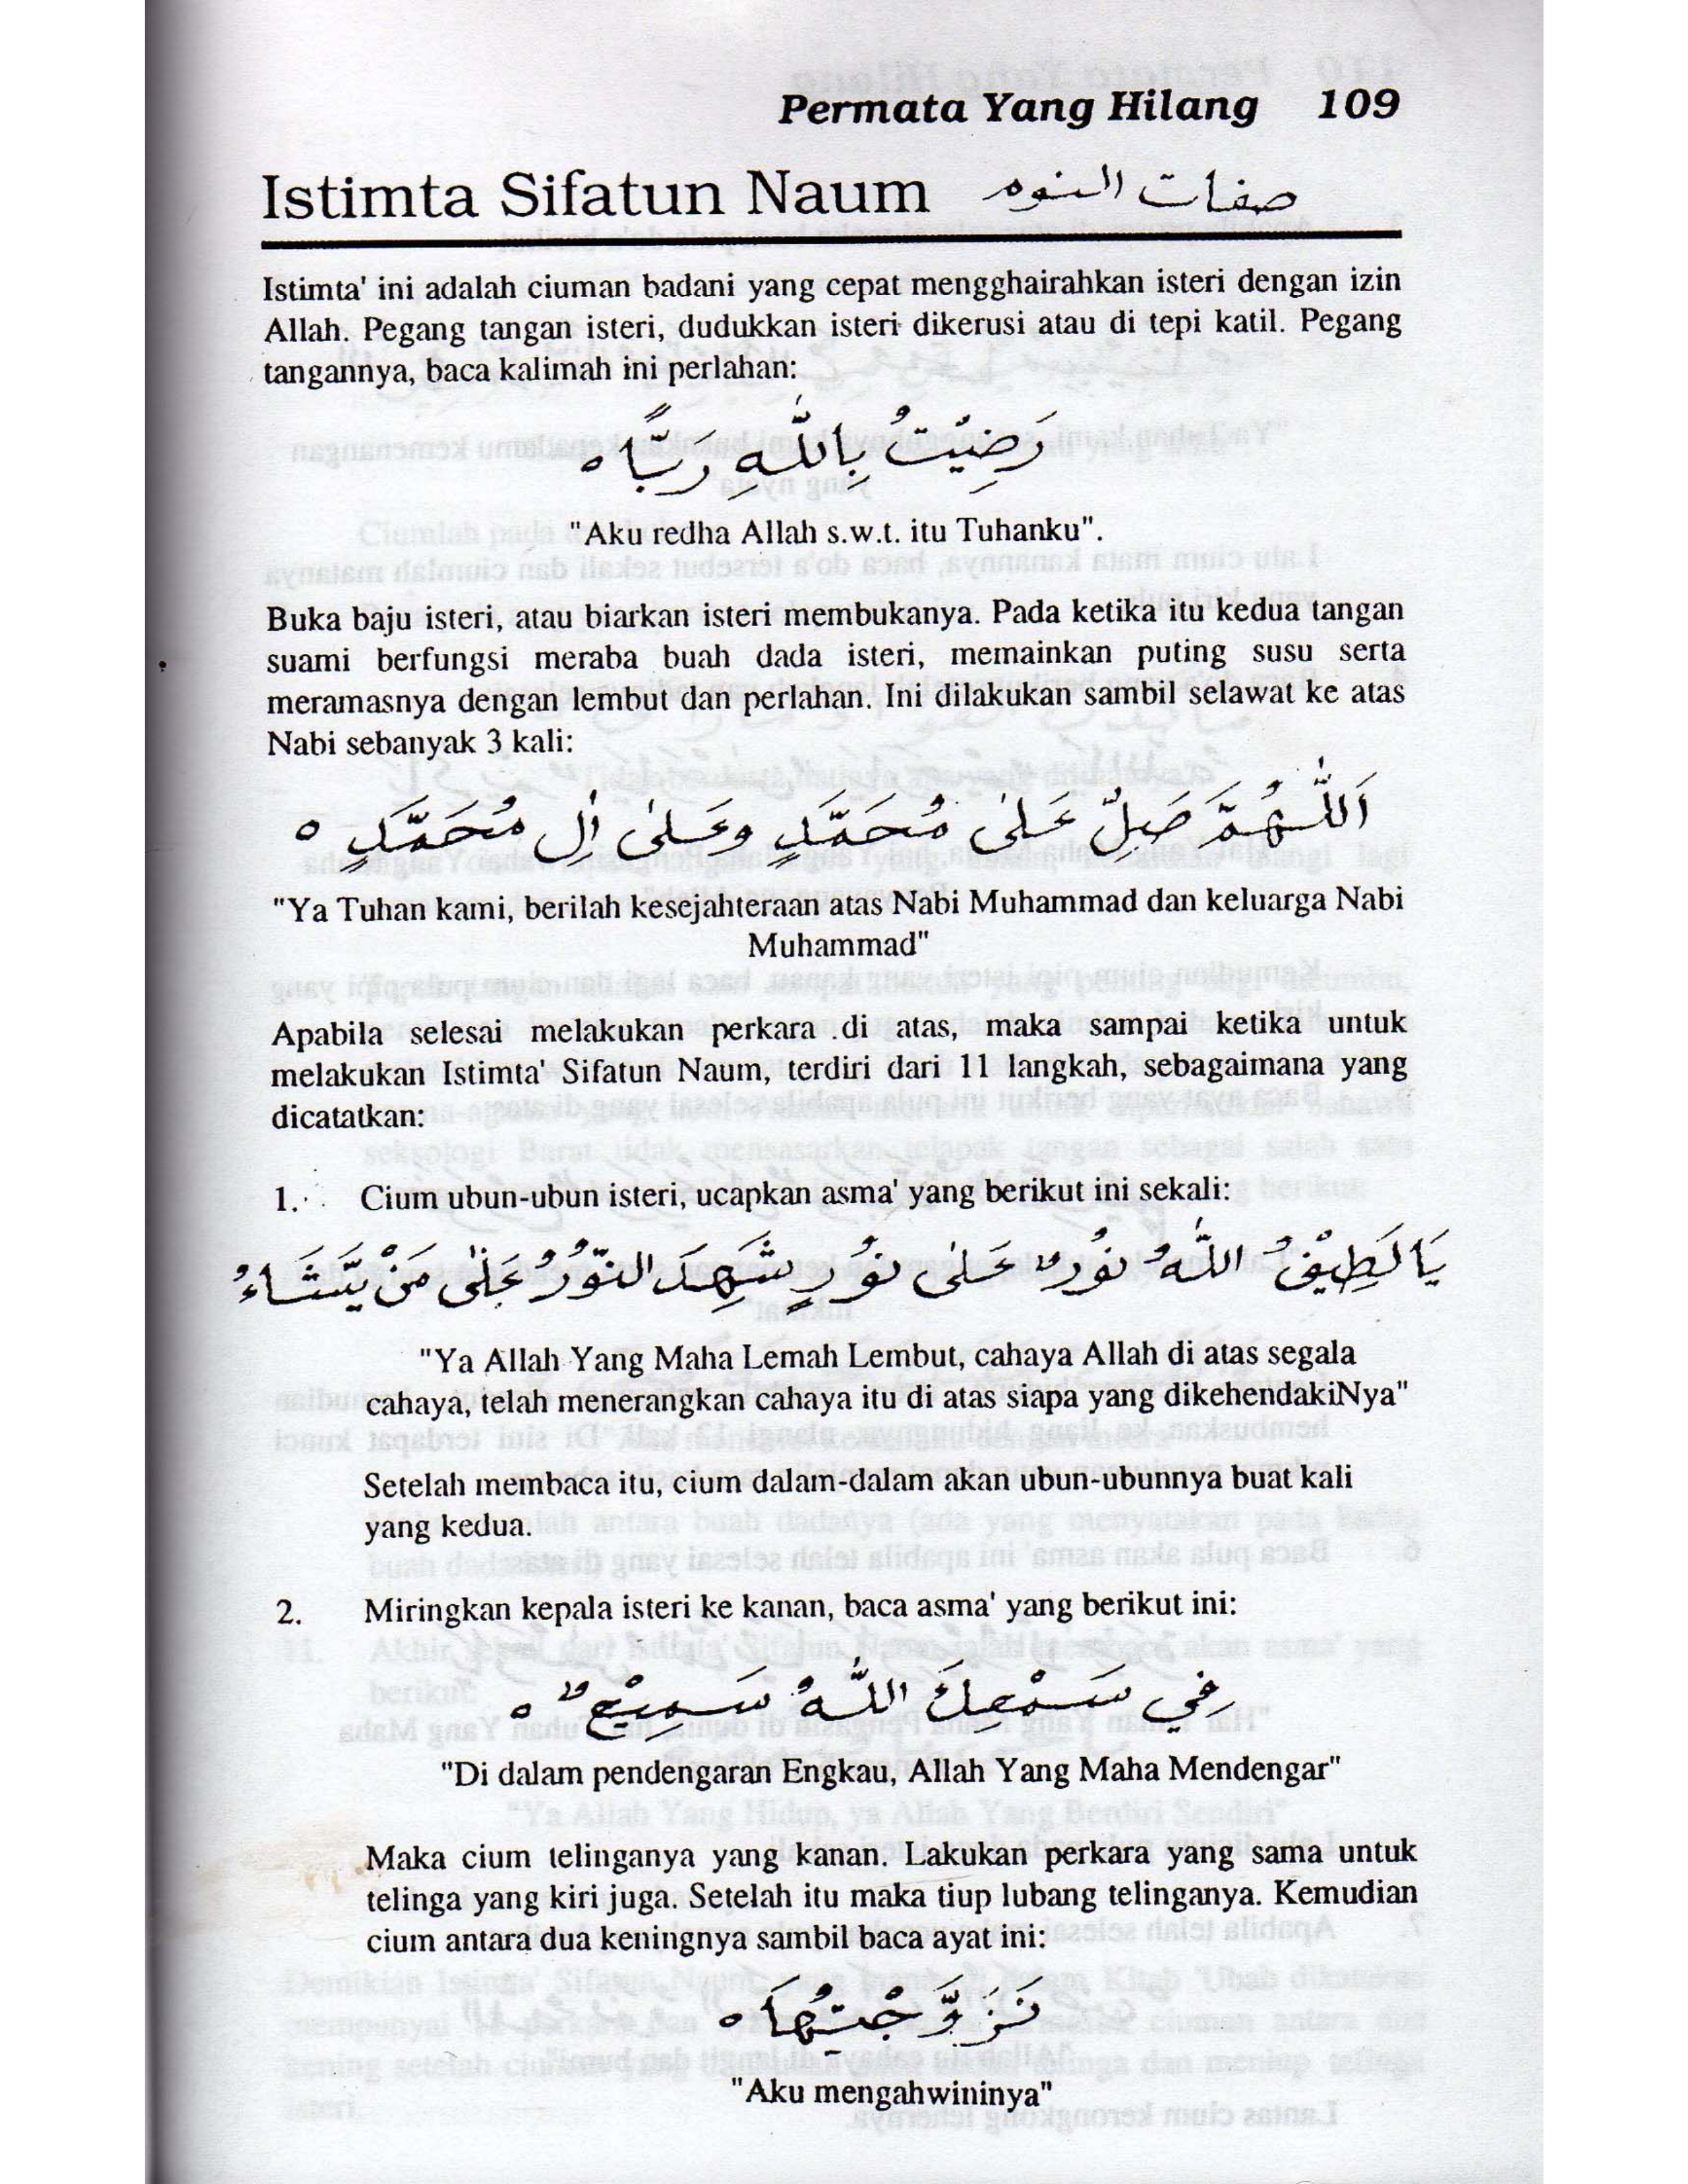 Permata Yang Hilang 109
Istimta Sifatun Naum صفات النوم
Istimta' ini adalah ciuman badani yang cepat mengghairahkan isteri dengan izin
Allah. Pegang tangan isteri, dudukkan isteri dikerusi atau di tepi katil. Pegang
tangannya, baca kalimah ini perlahan:
رَضِيْتُ بِاللّٰهِ رَبًّا ه
"Aku redha Allah s.w.t. itu Tuhanku".
Buka baju isteri, atau biarkan isteri membukanya. Pada ketika itu kedua tangan
suami berfungsi meraba buah dada isteri, memainkan puting susu serta
meramasnya dengan lembut dan perlahan. Ini dilakukan sambil selawat ke atas
Nabi sebanyak 3 kali:
اَللّٰهُمَّ صَلِّ عَلىٰ مُحَمَّدٍ وعَلىٰ اٰلِ مُحَمَّدٍ ه
"Ya Tuhan kami, berilah kesejahteraan atas Nabi Muhammad dan keluarga Nabi
Muhammad"
Apabila selesai melakukan perkara di atas, maka sampai ketika untuk
melakukan Istimta' Sifatun Naum, terdiri dari 11 langkah, sebagaimana yang
dicatatkan:
1. Cium ubun-ubun isteri, ucapkan asma' yang berikut ini sekali:
يَا لَطِيْفُ اللّٰهُ نُوْرٌ عَلىٰ نُوْرٍ شَهِدَ النُّوْرُ عَلٰى مَنْ يَّشَاءُ
"Ya Allah Yang Maha Lemah Lembut, cahaya Allah di atas segala
cahaya, telah menerangkan cahaya itu di atas siapa yang dikehendakiNya"
Setelah membaca itu, cium dalam-dalam akan ubun-ubunnya buat kali
yang kedua.
2. Miringkan kepala isteri ke kanan, baca asma' yang berikut ini:
فِي سَمْعِكَ اللّٰهُ سَمِيْعٌ ه
"Di dalam pendengaran Engkau, Allah Yang Maha Mendengar"
Maka cium telinganya yang kanan. Lakukan perkara yang sama untuk
telinga yang kiri juga. Setelah itu maka tiup lubang telinganya. Kemudian
cium antara dua keningnya sambil baca ayat ini:
تَزَوَّجْتُهَا ه
"Aku mengahwininya"